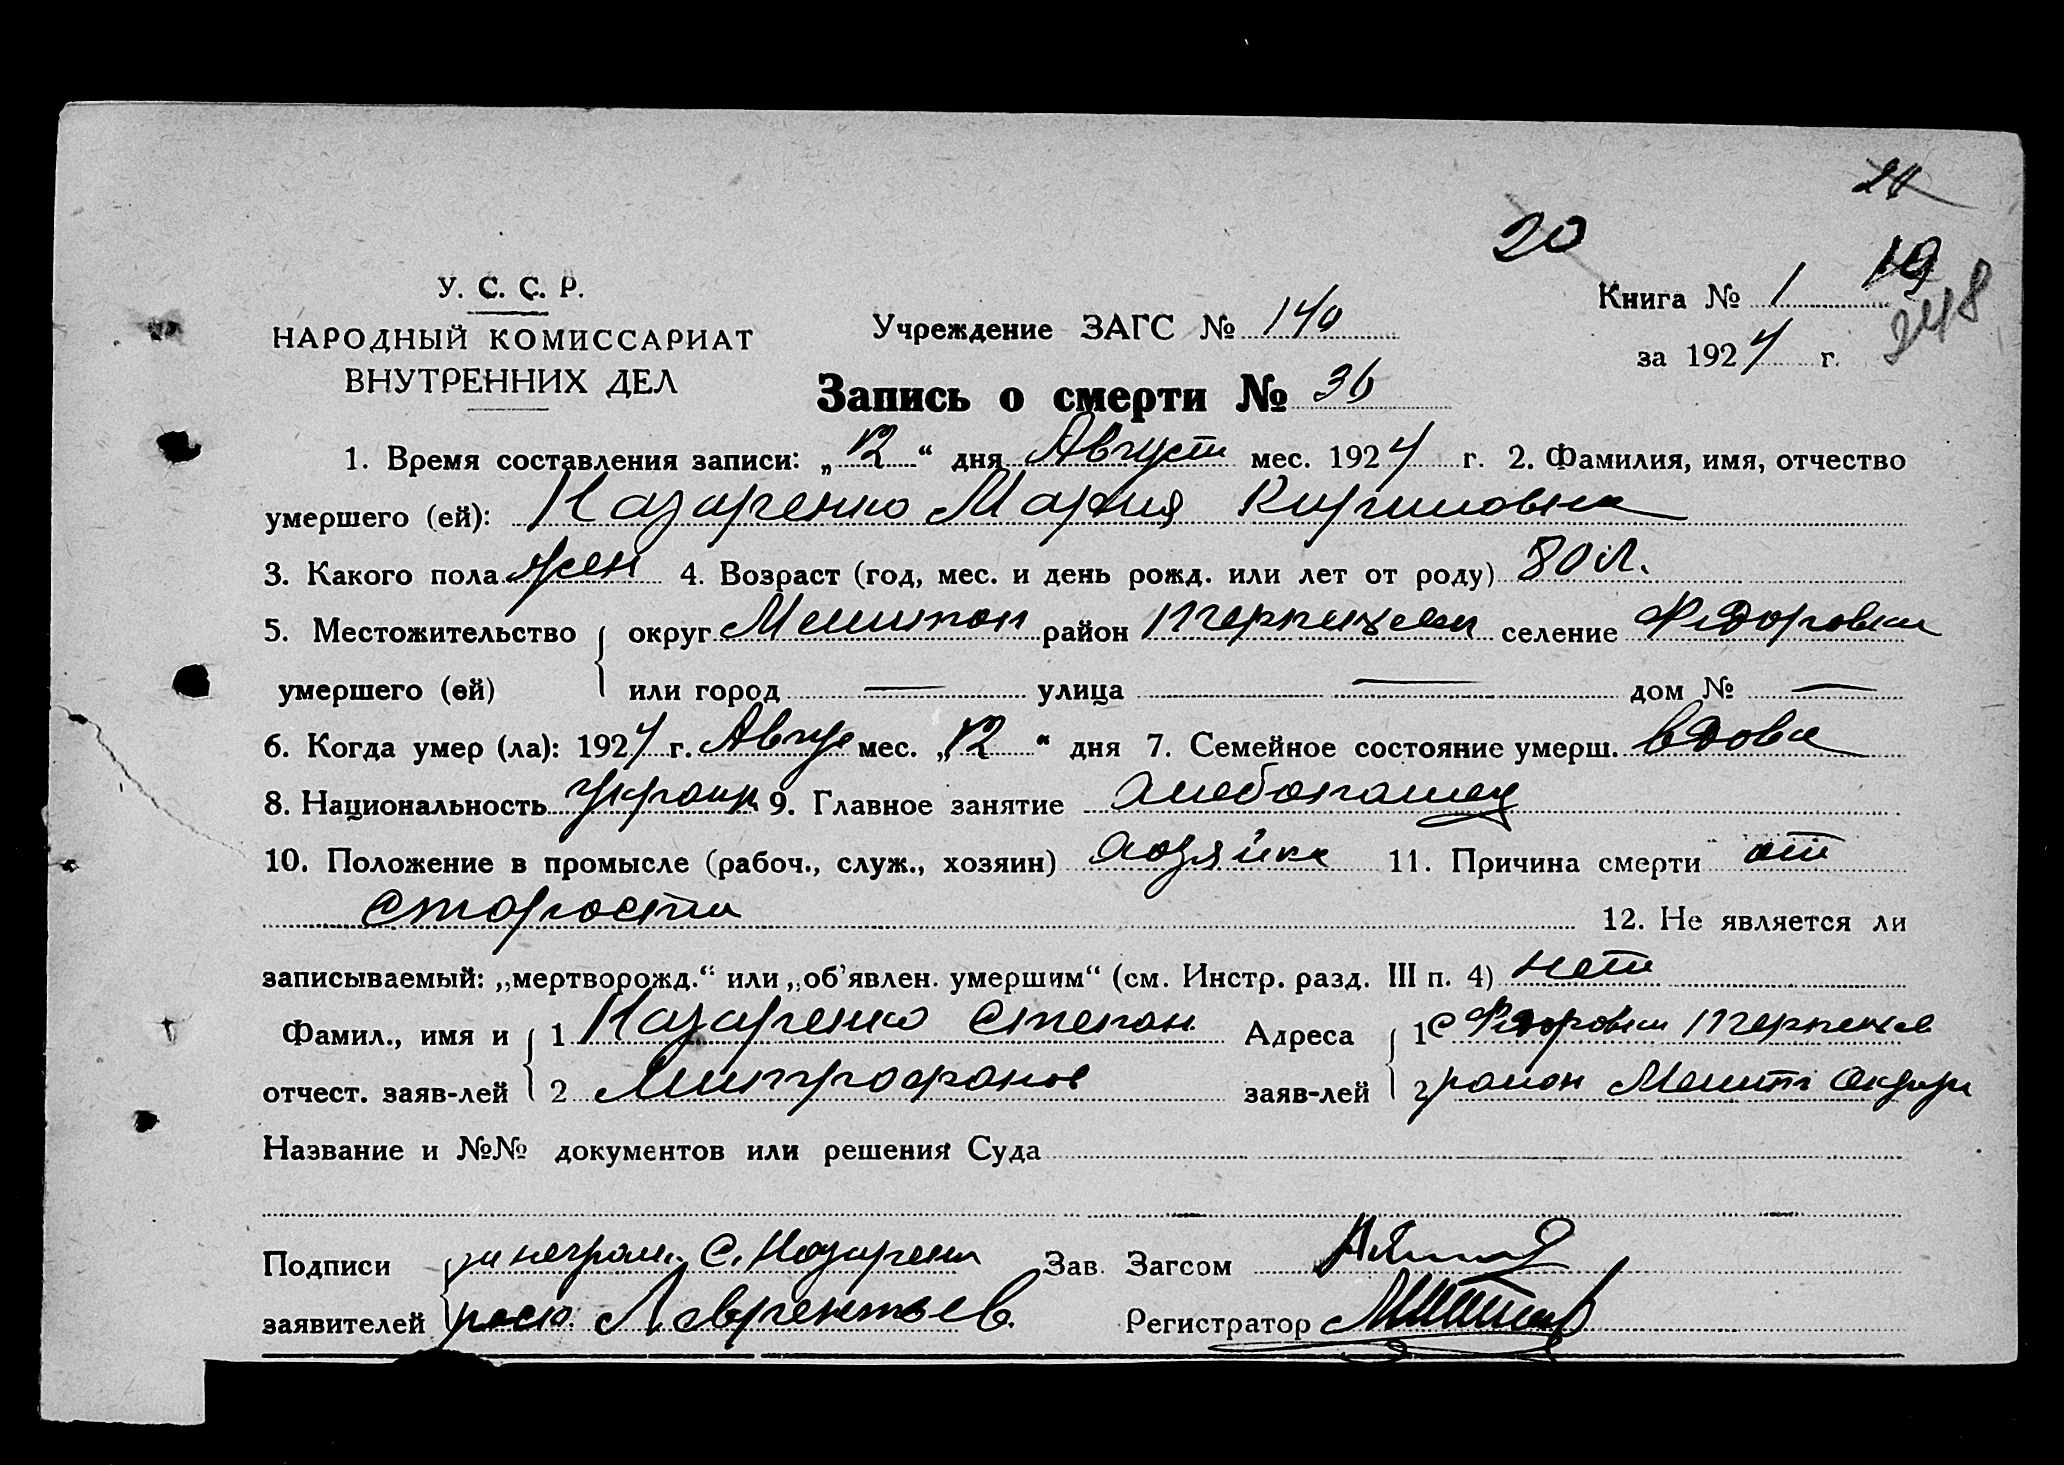 24
20
19
248
У. С. С. Р.
НАРОДНЫЙ КОМИССАРИАТ
ВНУТРЕННИХ ДЕЛ
Учреждение ЗАГС № 140
Книга № 1
за 1924 г.
Запись о смерти № 36
1. Время составления записи: „12“ дня Август мес. 1924 г. 2. Фамилия, имя, отчество
умершего (ей): Назаренко Мария Кириловна
3. Какого пола жен 4. Возраст (год, мес. и день рожд. или лет от роду) 80 л.
5. Местожительство округ Мелитоп район Терпецкой селение Федоровка
умершего (ей) или город — улица — дом № —
6. Когда умер (ла): 1924 г. Авгус мес. „12“ дня 7. Семейное состояние умерш. вдова
8. Национальность украин 9. Главное занятие хлебопашец
10. Положение в промысле (рабоч., служ., хозяин) хозяйка 11. Причина смерти от
старости 12. Не является ли
записываемый: „мертворожд.“ или „об'явлен. умершим“ (см. Инстр. разд. III п. 4) нет
Фамил., имя и 1 Назаренко Степан Адреса 1 с Федоровки
отчест. заяв-лей 2 Митрофанов заяв-лей 2 район Мелит Округи
Название и №№ документов или решения Суда
Подписи за неграм. С. Назаренк Зав. Загсом
заявителей росп. Лаврентьев Регистратор